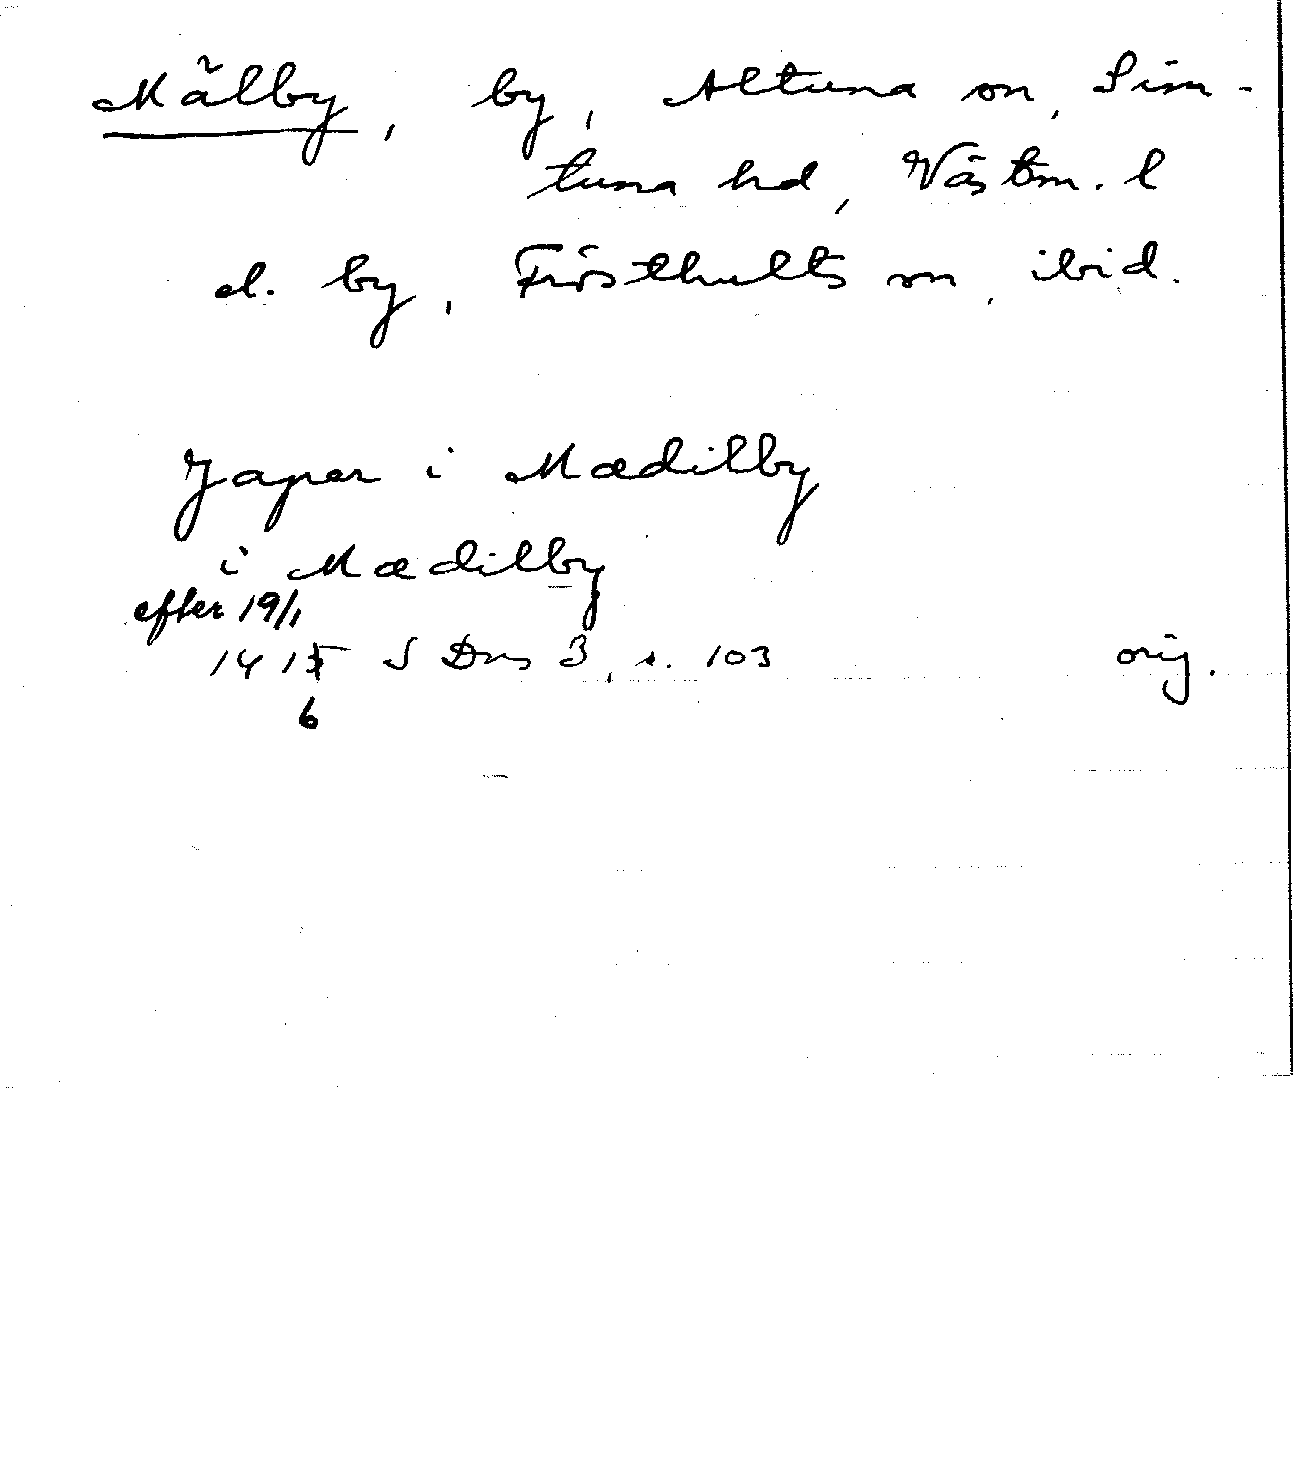 Mälby, by, Altuna sn, Sim-
tuna hd, Västm. l
el. by, Frösthults sn, ibid.
Japer i Mædilby
i Mædilby
efter 19/1
1415 S Dns 3, s. 103 orig.
6